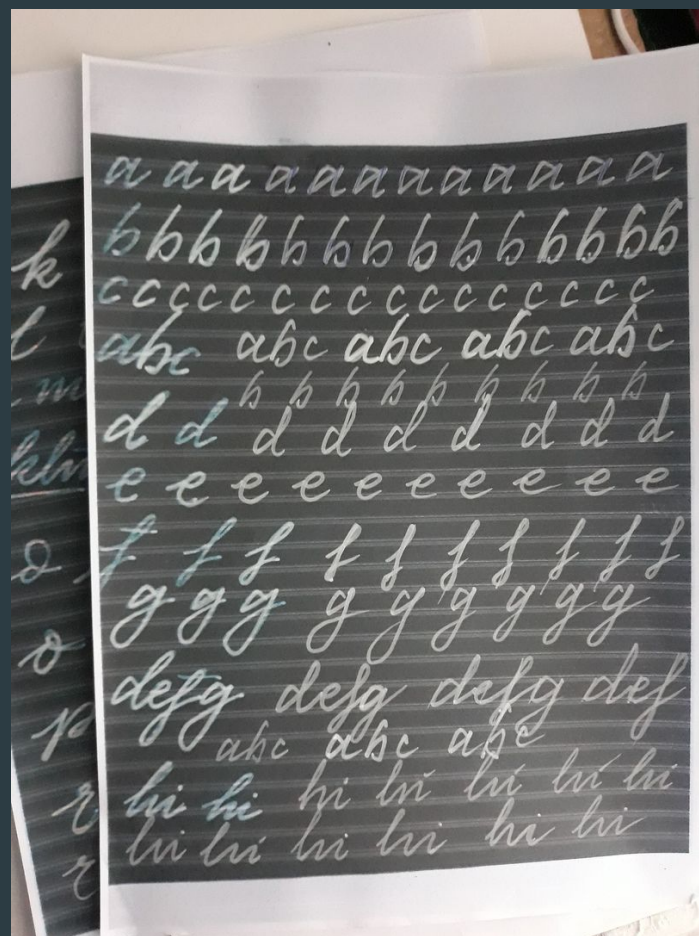 a a a a a a a a a a a a
b b b b b b b b b b b b b b
c c c c c c c c c c c c c c c c
abc abc abc abc abc
b b b b b b b b b
d d d d d d d d d
e e e e e e e e e e
f f f f f f f f f f
g g g g g g g g g
defg defg defg def
abc abc abc
hi hi hi hi hi hi hi
hi hi hi hi hi hi
k
m
klm
o
o
p
r
r